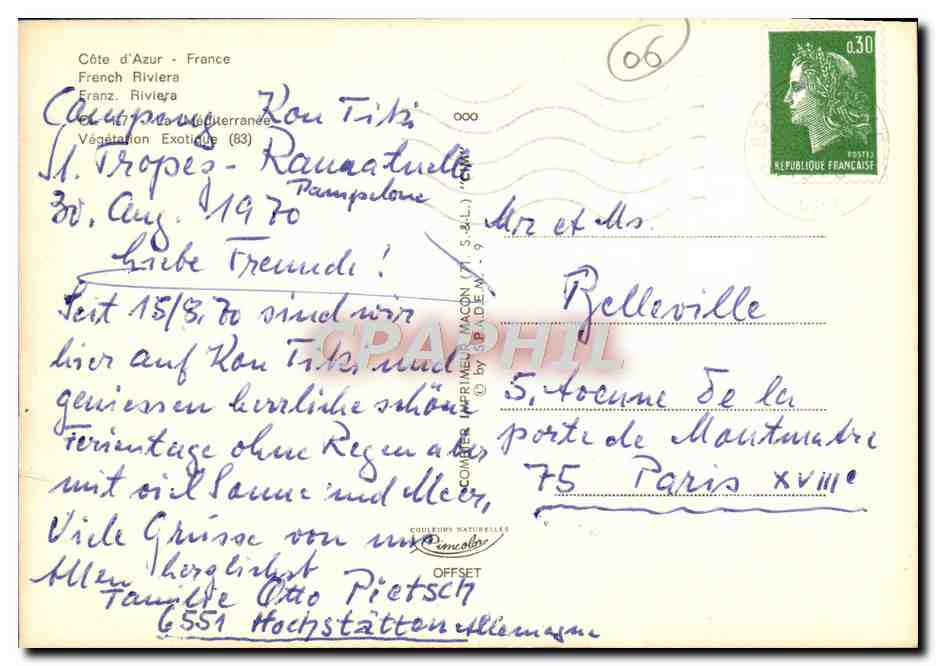 Côte d'Azur - France
French Riviera
Franz. Riviera
La Méditerranée
Végétation Exotique (83)
Camping Kon Tiki
St. Tropes - Ramatuelle
Pampelone
30. Aug. 1970
Liebe Freunde!
Seit 15/8.70 sind wir
hier auf Kon Tiki und
geniessen herrliche schöne
Ferientage ohne Regen aber
mit viel Sonne und Meer,
Viele Grüsse von uns
Allen herzlichst
Familie Otto Pietsch
6551 Hochstätten Allemagne
COMBIER IMPRIMEUR MACON (71 S.-&-L.) "CIM"
© by S.P.A.D.E.M. - 9
COULEURS NATURELLES
Cimcolor
OFFSET
06
0,30
POSTES
RÉPUBLIQUE FRANÇAISE
Mr et Ms.
Belleville
5, Avenue de la
porte de Montmatre
75 Paris XVIIIe
CPAPHIL